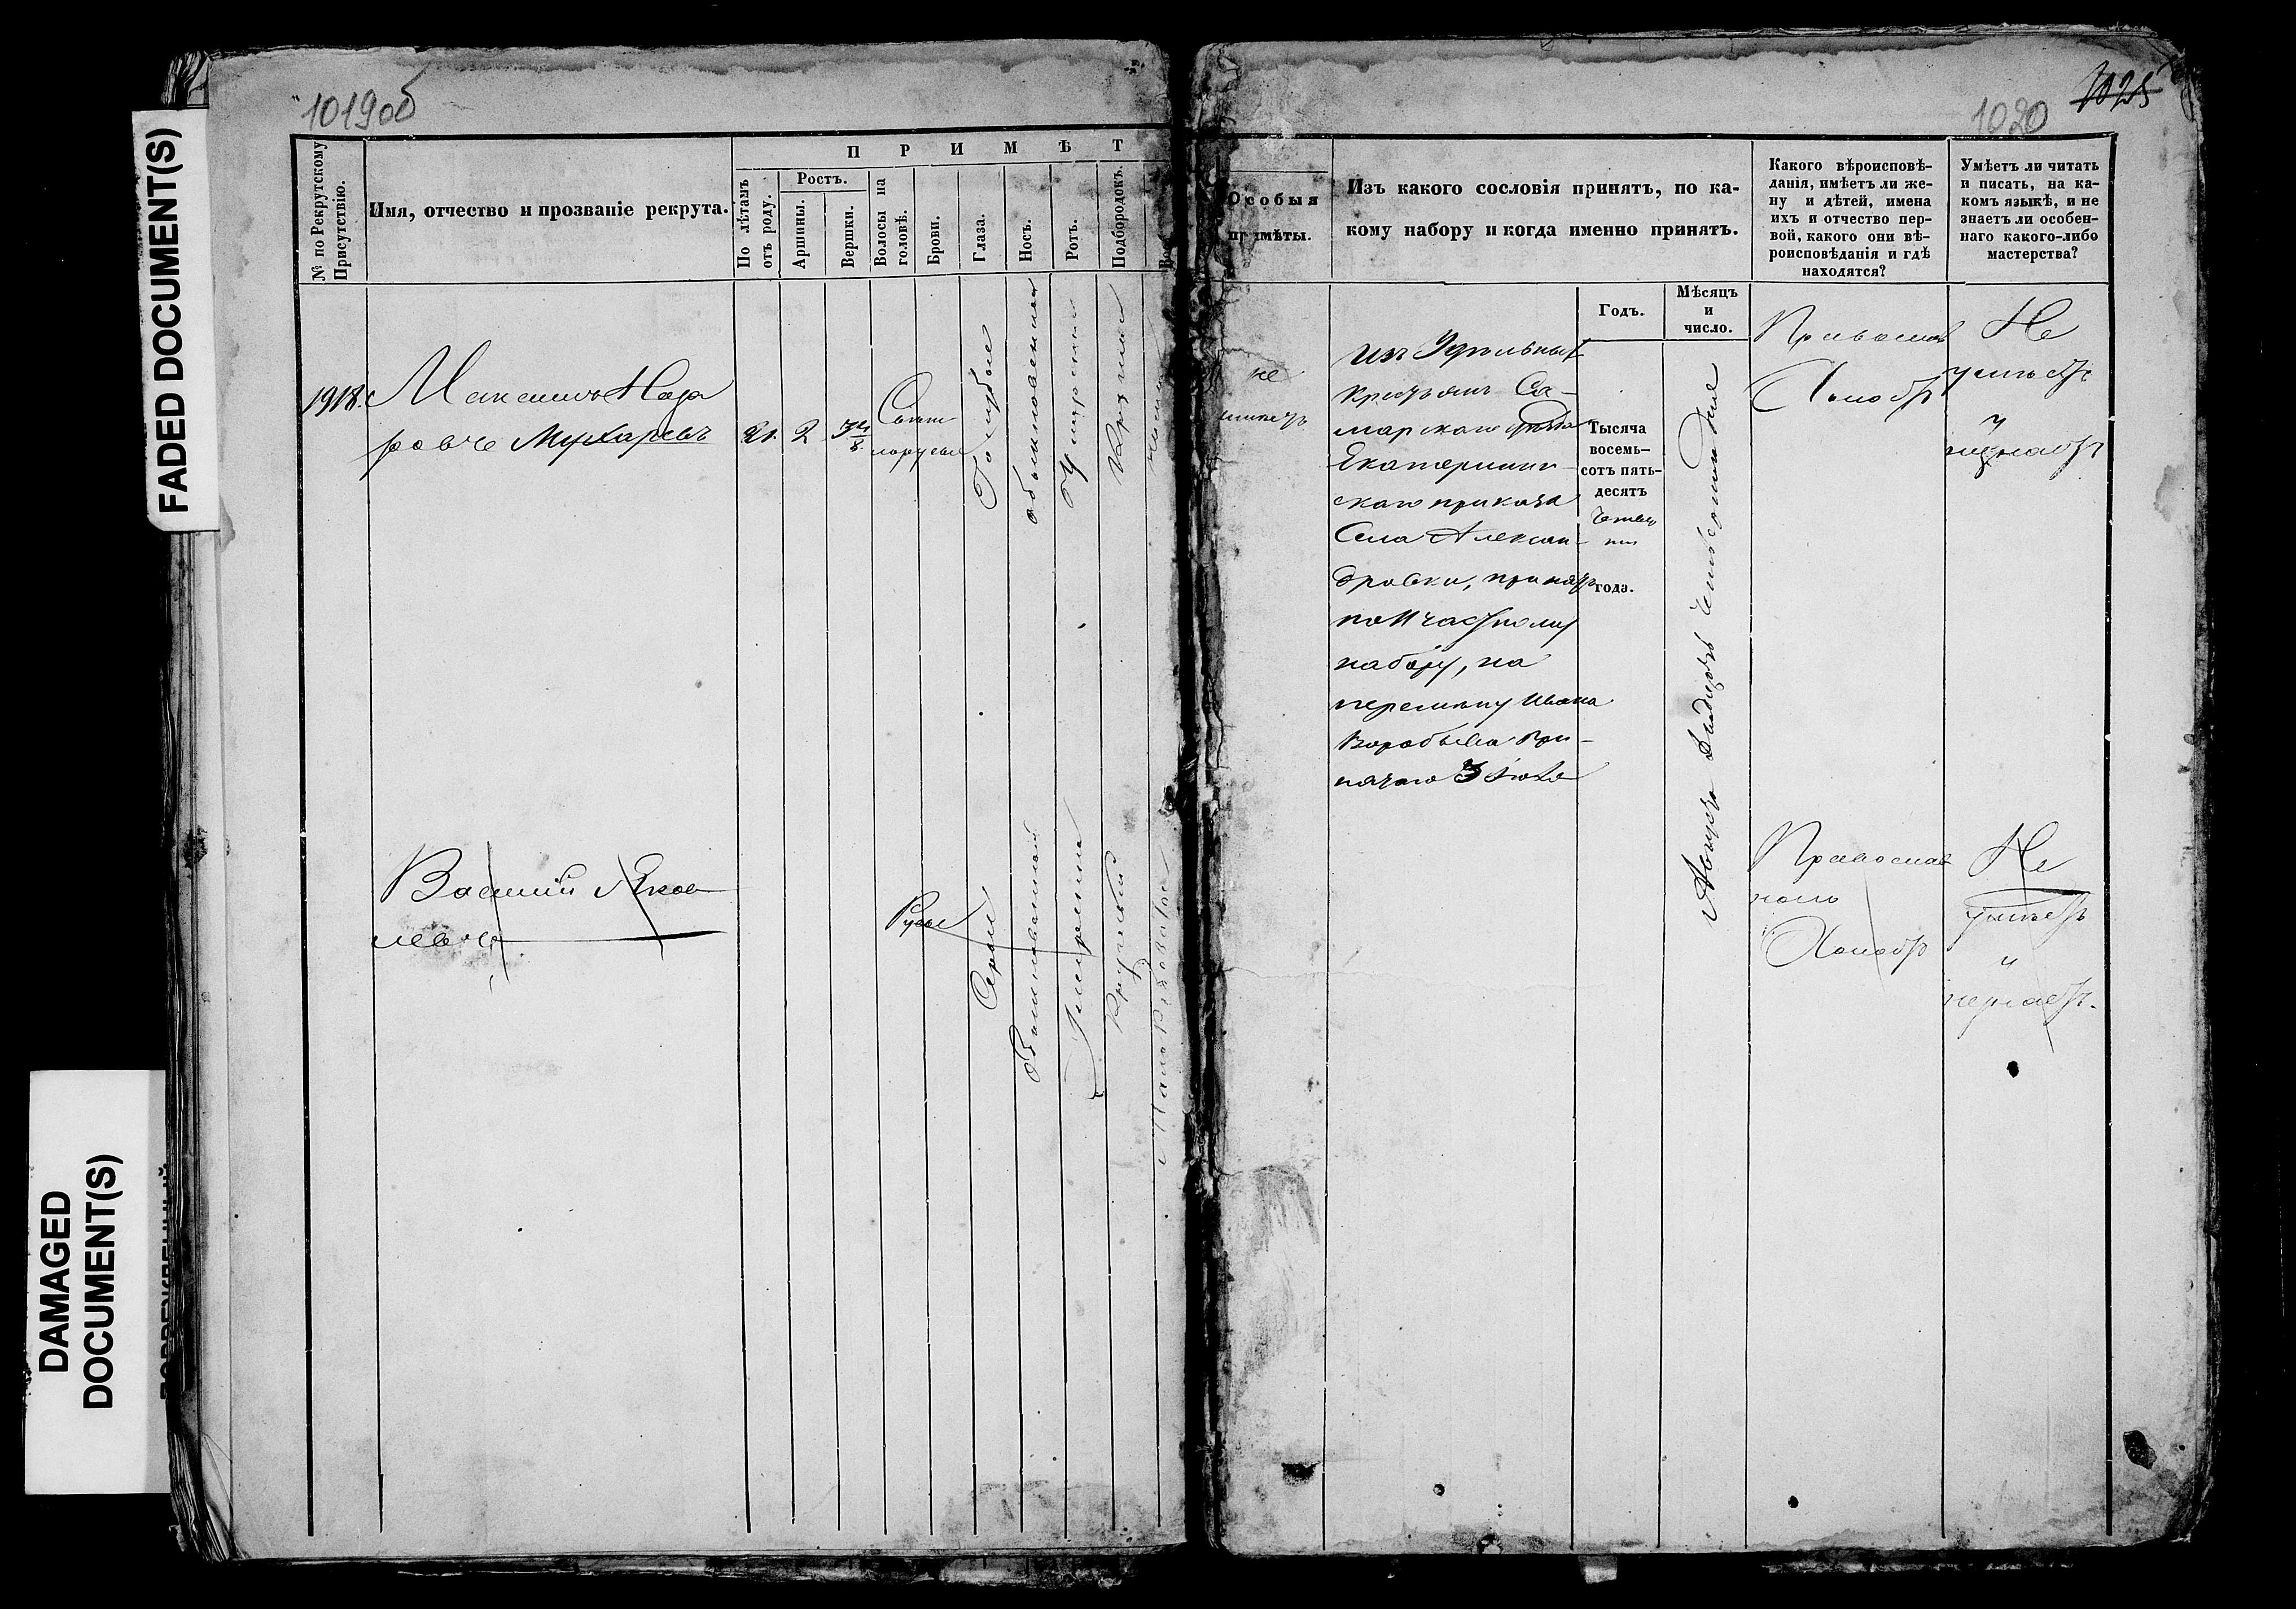 FADED DOCUMENT(S)
DAMAGED
DOCUMENT(S)
1019об
№ по Рекрутскому
Присутствію.
Имя, отчество и прозваніе рекрута.
ПРИМѢТ
По лѣтамъ
отъ роду.
Ростъ.
Аршины.
Вершки.
Волосы на
головѣ.
Брови.
Глаза.
Носъ.
Ротъ.
Подбородокъ.
1918.
Максимъ Наза
ровъ Мухаревъ
21.
2
Свѣт
лорусые
Голубые
обыкновенный
Умѣренный
Василій Яков
левъ
Русые
Сѣрые
Обыкновенный
Умѣренный
Круглый
1020
1025
Особыя
примѣты.
Изъ какого сословія принятъ, по ка-
кому набору и когда именно принятъ.
Годъ.
Мѣсяцъ
и
число.
Какого вѣроисповѣ-
данія, имѣетъ ли же-
ну и дѣтей, имена
ихъ и отчество пер-
вой, какого они вѣ-
роисповѣданія и гдѣ
находятся?
Умѣетъ ли читать
и писать, на ка-
комъ языкѣ, и не
знаетъ ли особен-
наго какого-либо
мастерства?
не
имѣетъ
Изъ Удѣльныхъ
крестьянъ Са-
марскаго
Екатеринин
скаго приказа
Села Алексан-
дровки, принятъ
по 11 частному
набору, на
перемѣну Ивана
Воробьева при-
нятаго 3 Іюля
Тысяча
восемь-
сотъ пять-
десятъ
четвер
таго
года.
Августа двадцать четвертаго дня
Православ
Холостъ
Не
умѣетъ
и
незнаетъ
Православ
наго
Холостъ
Не
умѣетъ
и
незнаетъ.